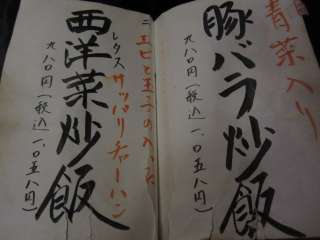 青菜入り
豚バラ炒飯
九八〇円(税込一、〇五八円)
エビと玉子の入った
レタス サッパリチャーハン
西洋菜炒飯
九八〇円(税込一、〇五八円)